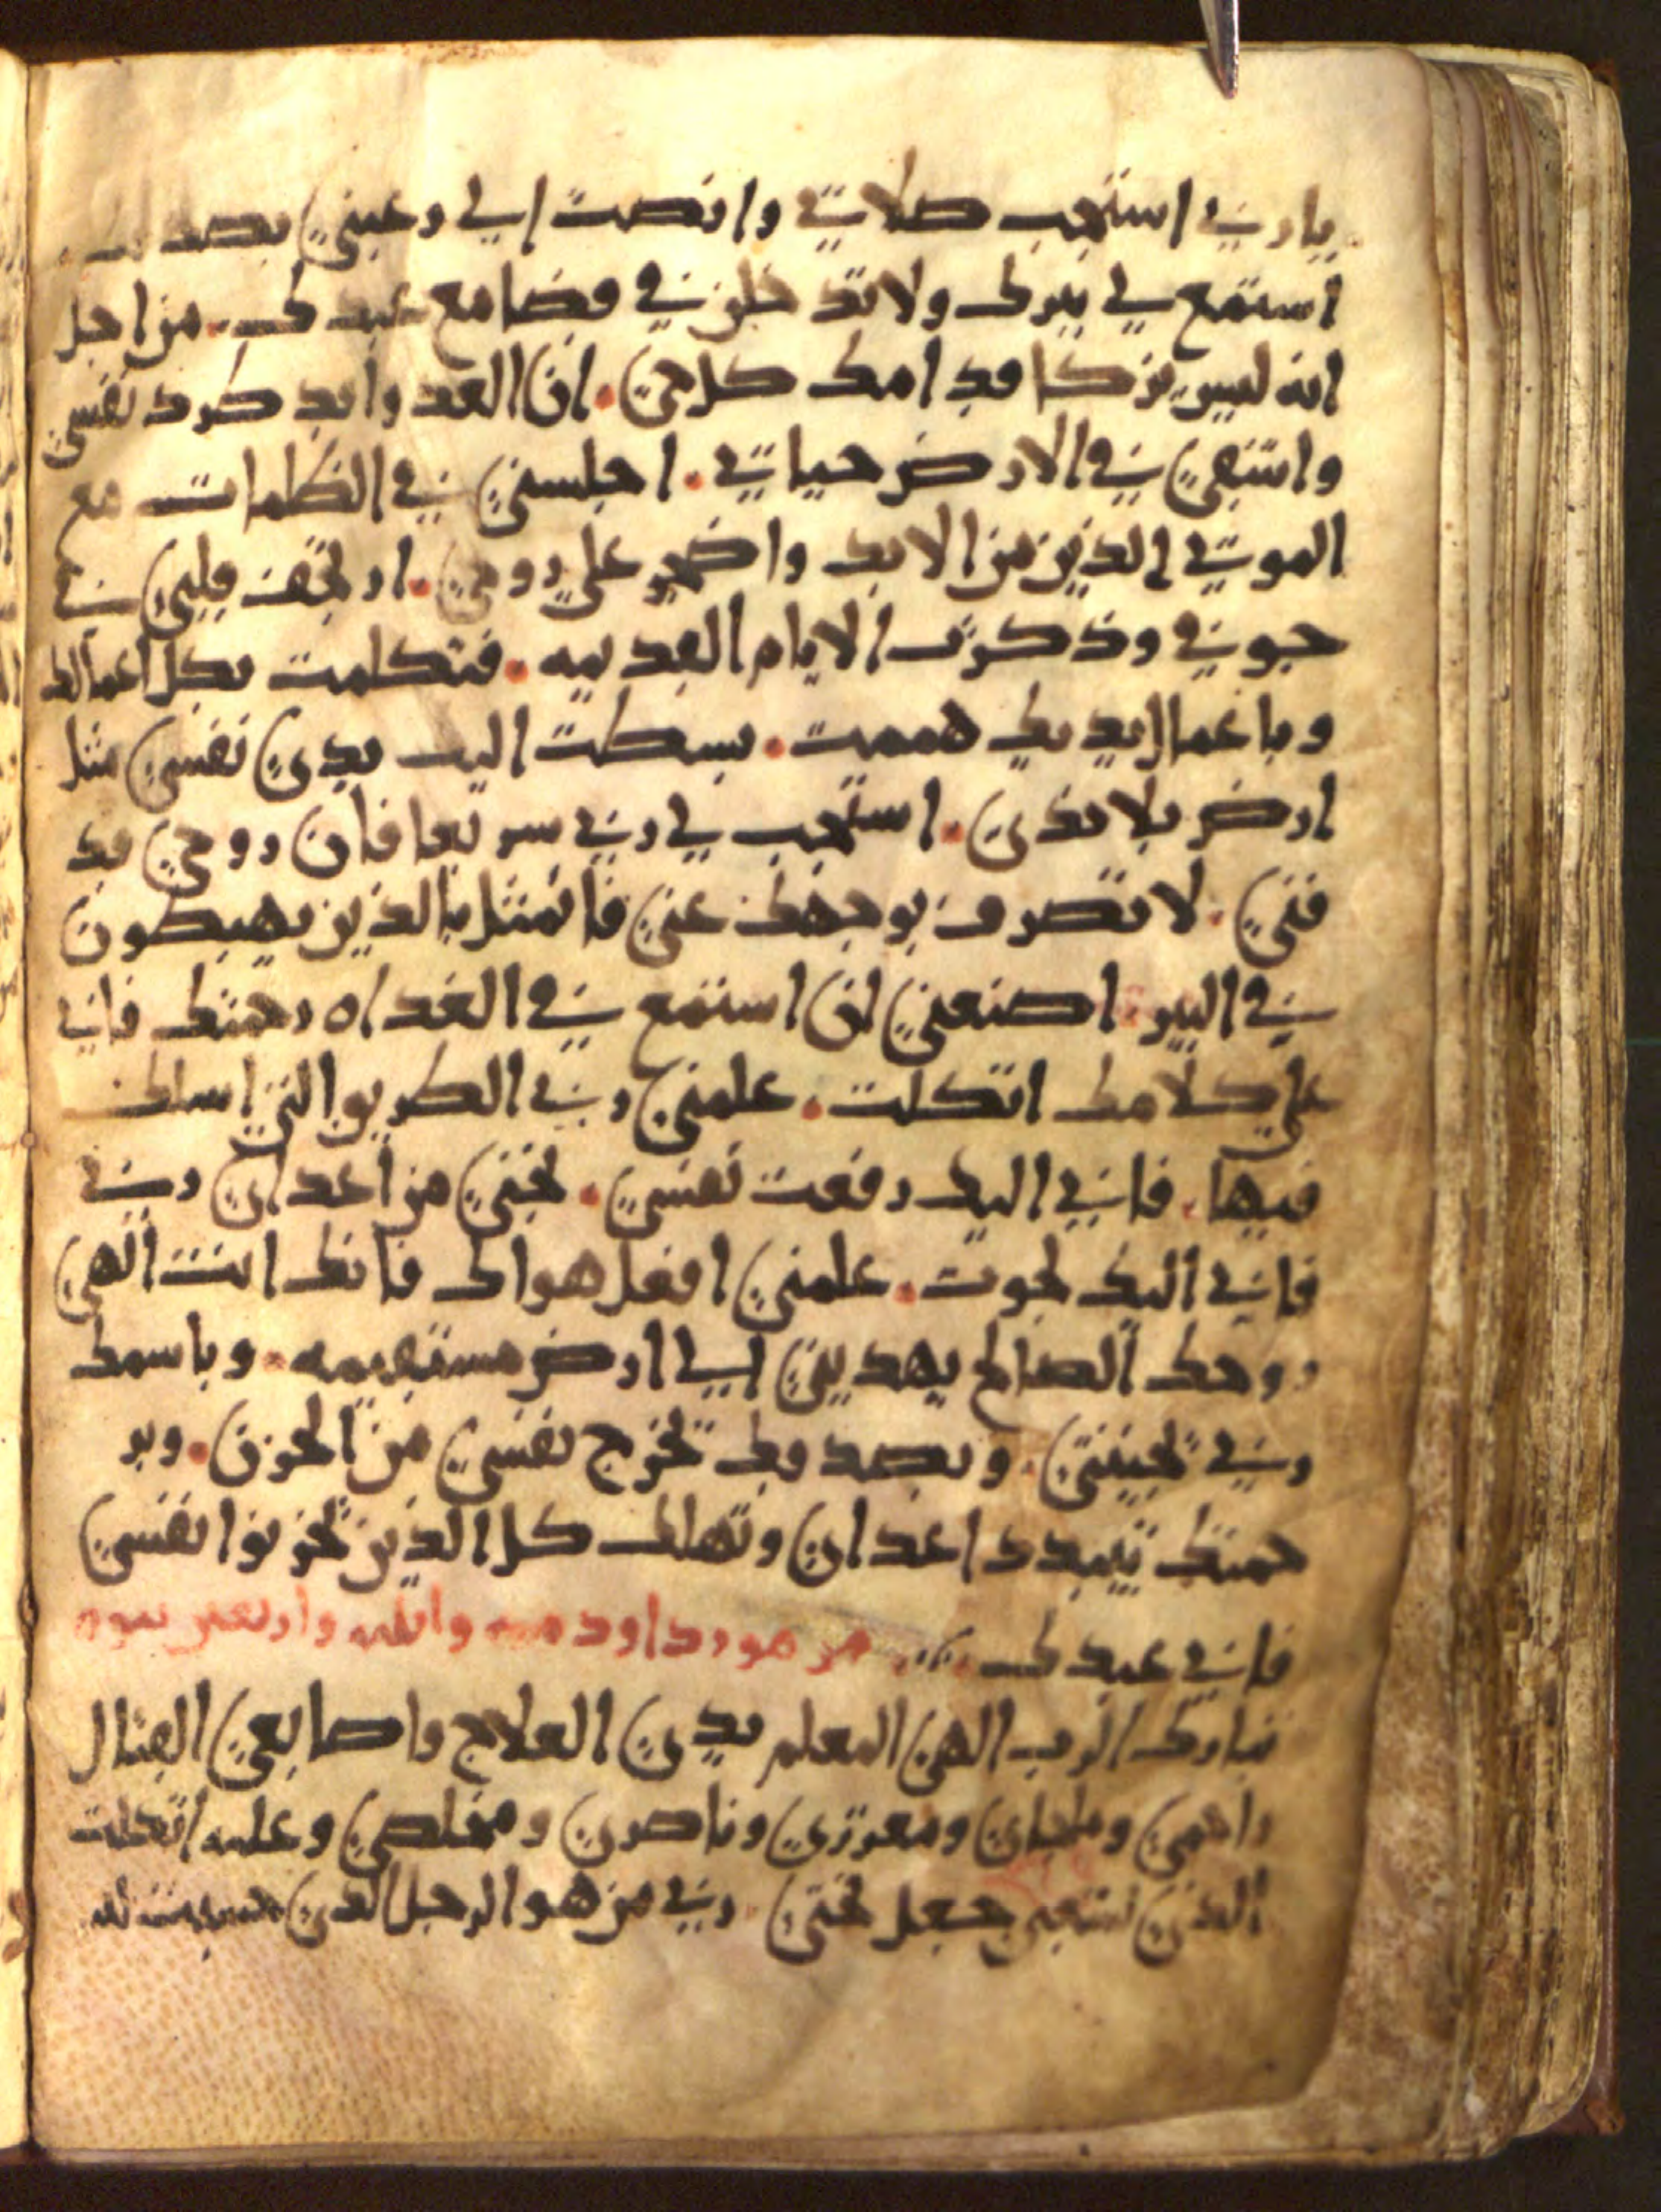 يا ربي استجب صلاتي وانصت الي رغبتي بصدقك
استمع لي ببرك ولا تدخلن في قضا مع عبدك. من اجل
انه ليس يزكا قدامك كل حي. ان العدو ابد طرد نفسي
واشقي في الارض حياتي. اجلسني في الظلمات مع
الموتي الذين من الابد واضجر علي روحي. ارتجف قلبي في
جوفي وذكرت الايام القديمه. فتكلمت بكل اعمالك
وباعمال يديك هممت. بسطت اليك يدي نفسي مثل
ارض بلا ندي. استجب لي ربي سريعا فان روحي قد
فني. لا تصرف بوجهك عني فاتمثل بالذين يهبطون
في البير اصنعني ان استمع في الغداه رحمتك فاني
علي كلامك اتكلت. علمني ربي الطريق التي اسلك
فيها. فاني اليك رفعت نفسي. نجني من اعداي ربي
فاني اليك نجوت. علمني افعل هواك فانك انت الهي
روحك الصالح يهديني الي ارض مستقيمه. وباسمك
ربي تحييني. وبصدقك تخرج نفسي من الحزن. وبر
حمتك تبدد اعداي وتهلك كل الذين تحزنوا نفسي
فاني عبدك مزمور داود ميه وثلثه واربعين
تبارك الرب الهي المعلم يدي العلاج واصابعي القتال
راحمي وملجاي ومعززي وناصري ومخلصي وعليه اتكلت
الذي جعل تحتي. ربي من هو الرجل الذي